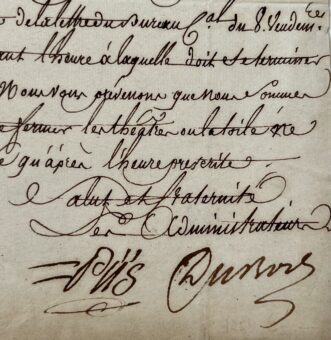 de la lettre du Bureau C.al du 8. Vendem.re
l'heure à laquelle doit se terminer
Nous vous prévenons que nous sommes
fermer les théâtres où la toile ne
qu'après l'heure prescrite
Salut et fraternité
Les Administrateurs
Piis Dubois